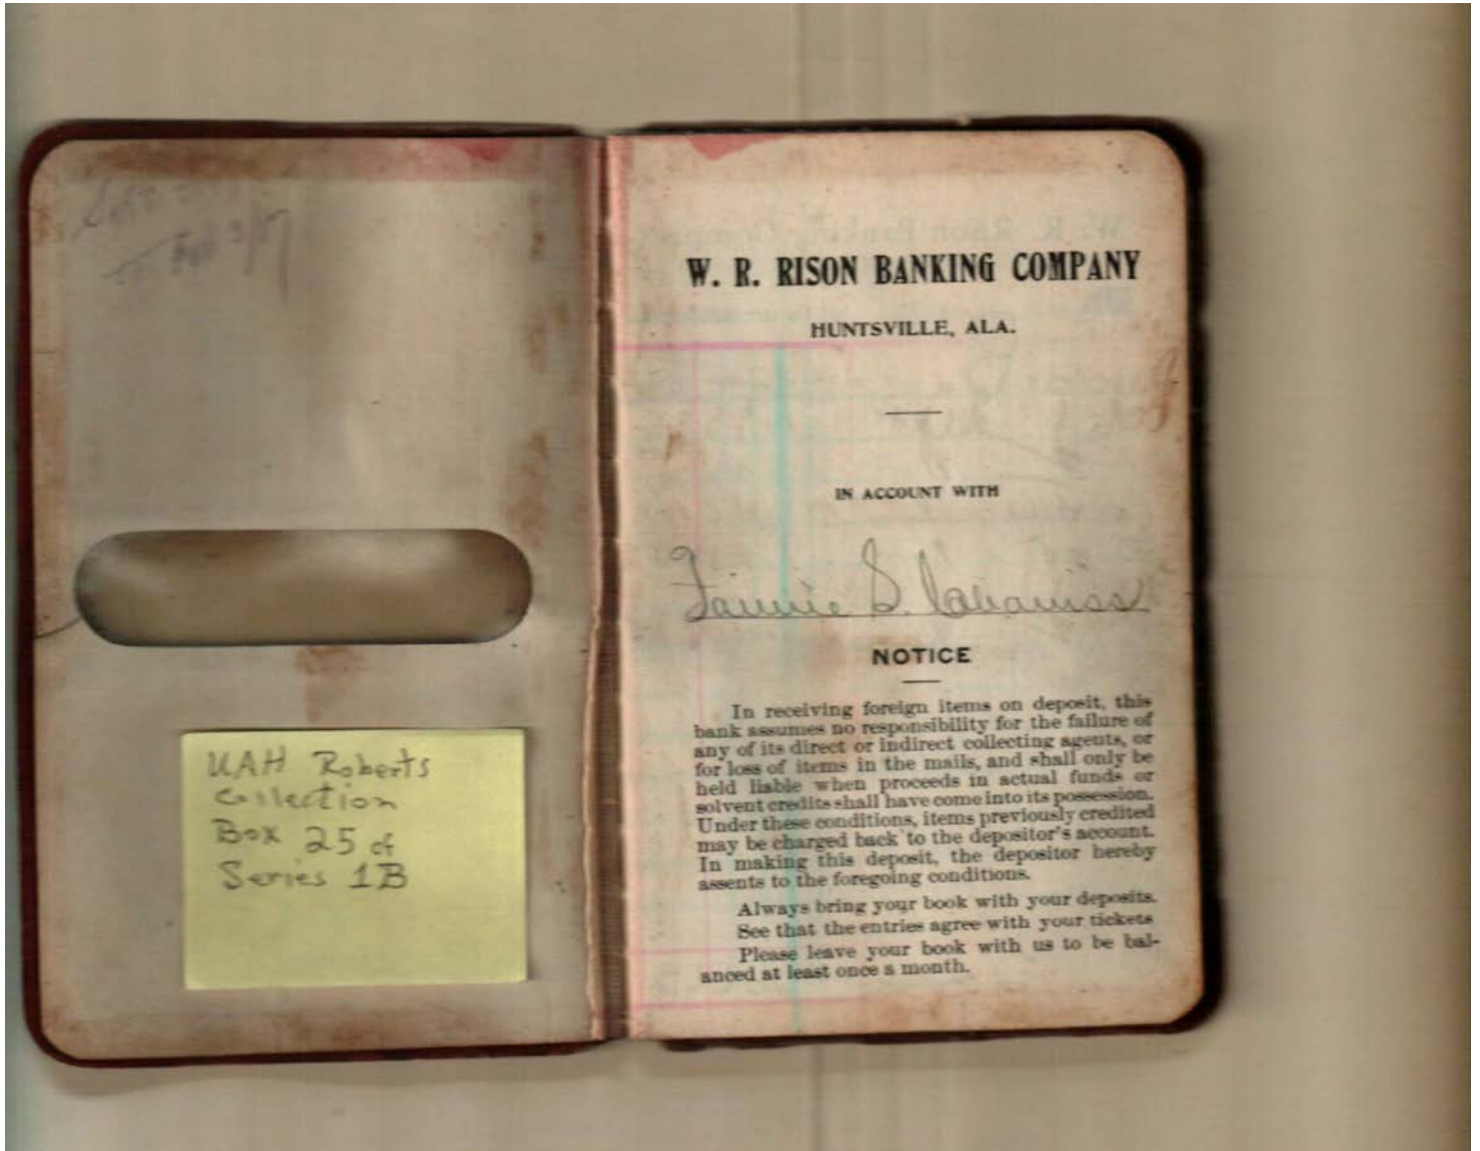 Feb 3/17
UAH Roberts
Collection
Box 25 of
Series 1B
W. R. RISON BANKING COMPANY
HUNTSVILLE, ALA.
IN ACCOUNT WITH
Fannie S. Cabaniss
NOTICE
In receiving foreign items on deposit, this
bank assumes no responsibility for the failure of
any of its direct or indirect collecting agents, or
for loss of items in the mails, and shall only be
held liable when proceeds in actual funds or
solvent credits shall have come into its possession.
Under these conditions, items previously credited
may be charged back to the depositor's account.
In making this deposit, the depositor hereby
assents to the foregoing conditions.
Always bring your book with your deposits.
See that the entries agree with your tickets
Please leave your book with us to be bal-
anced at least once a month.